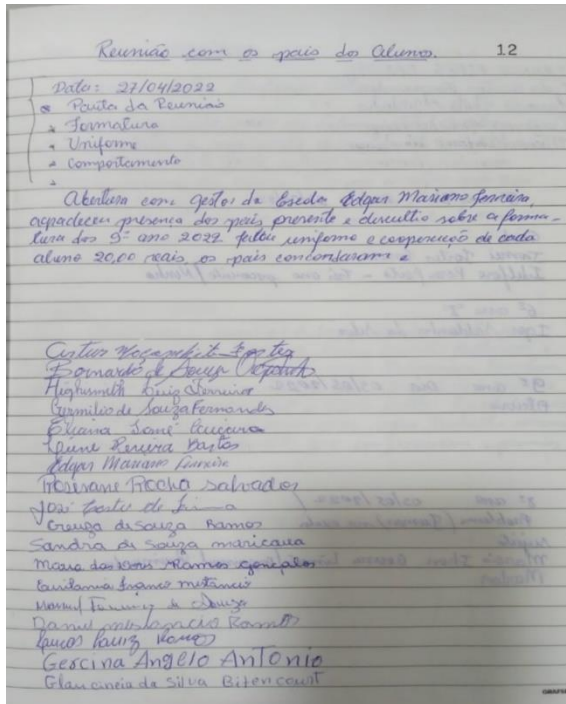 Reunião com os pais dos Alunos. 12
Data: 27/04/2022
Pauta da Reunião
Formatura
Uniforme
Comportamento
Abertura com gestor da Escola Edgar Mariano Ferreira,
agradeceu presença dos pais presente e discultio sobre a forma-
tura dos 9º ano 2022. uniforme e cooperação de cada
aluno 20,00 reais, os pais concordaram e
Bernardo de Souza
Highsmith Luiz Ferreira
Germilio de Souza Fernandes
Eliana José
Pereira Bastos
Edgar Mariano Ferreira
Rosirane Rocha Salvador
José de Lima
Creuza de Souza Ramos
Sandra de Souza maricaua
Maria das Ramos Gonçalos
Franco
Manuel de Souza
Daniel Ramos
Lucas Ramos
Gercina Angelo Antonio
Glaucineia da Silva Bitencourt